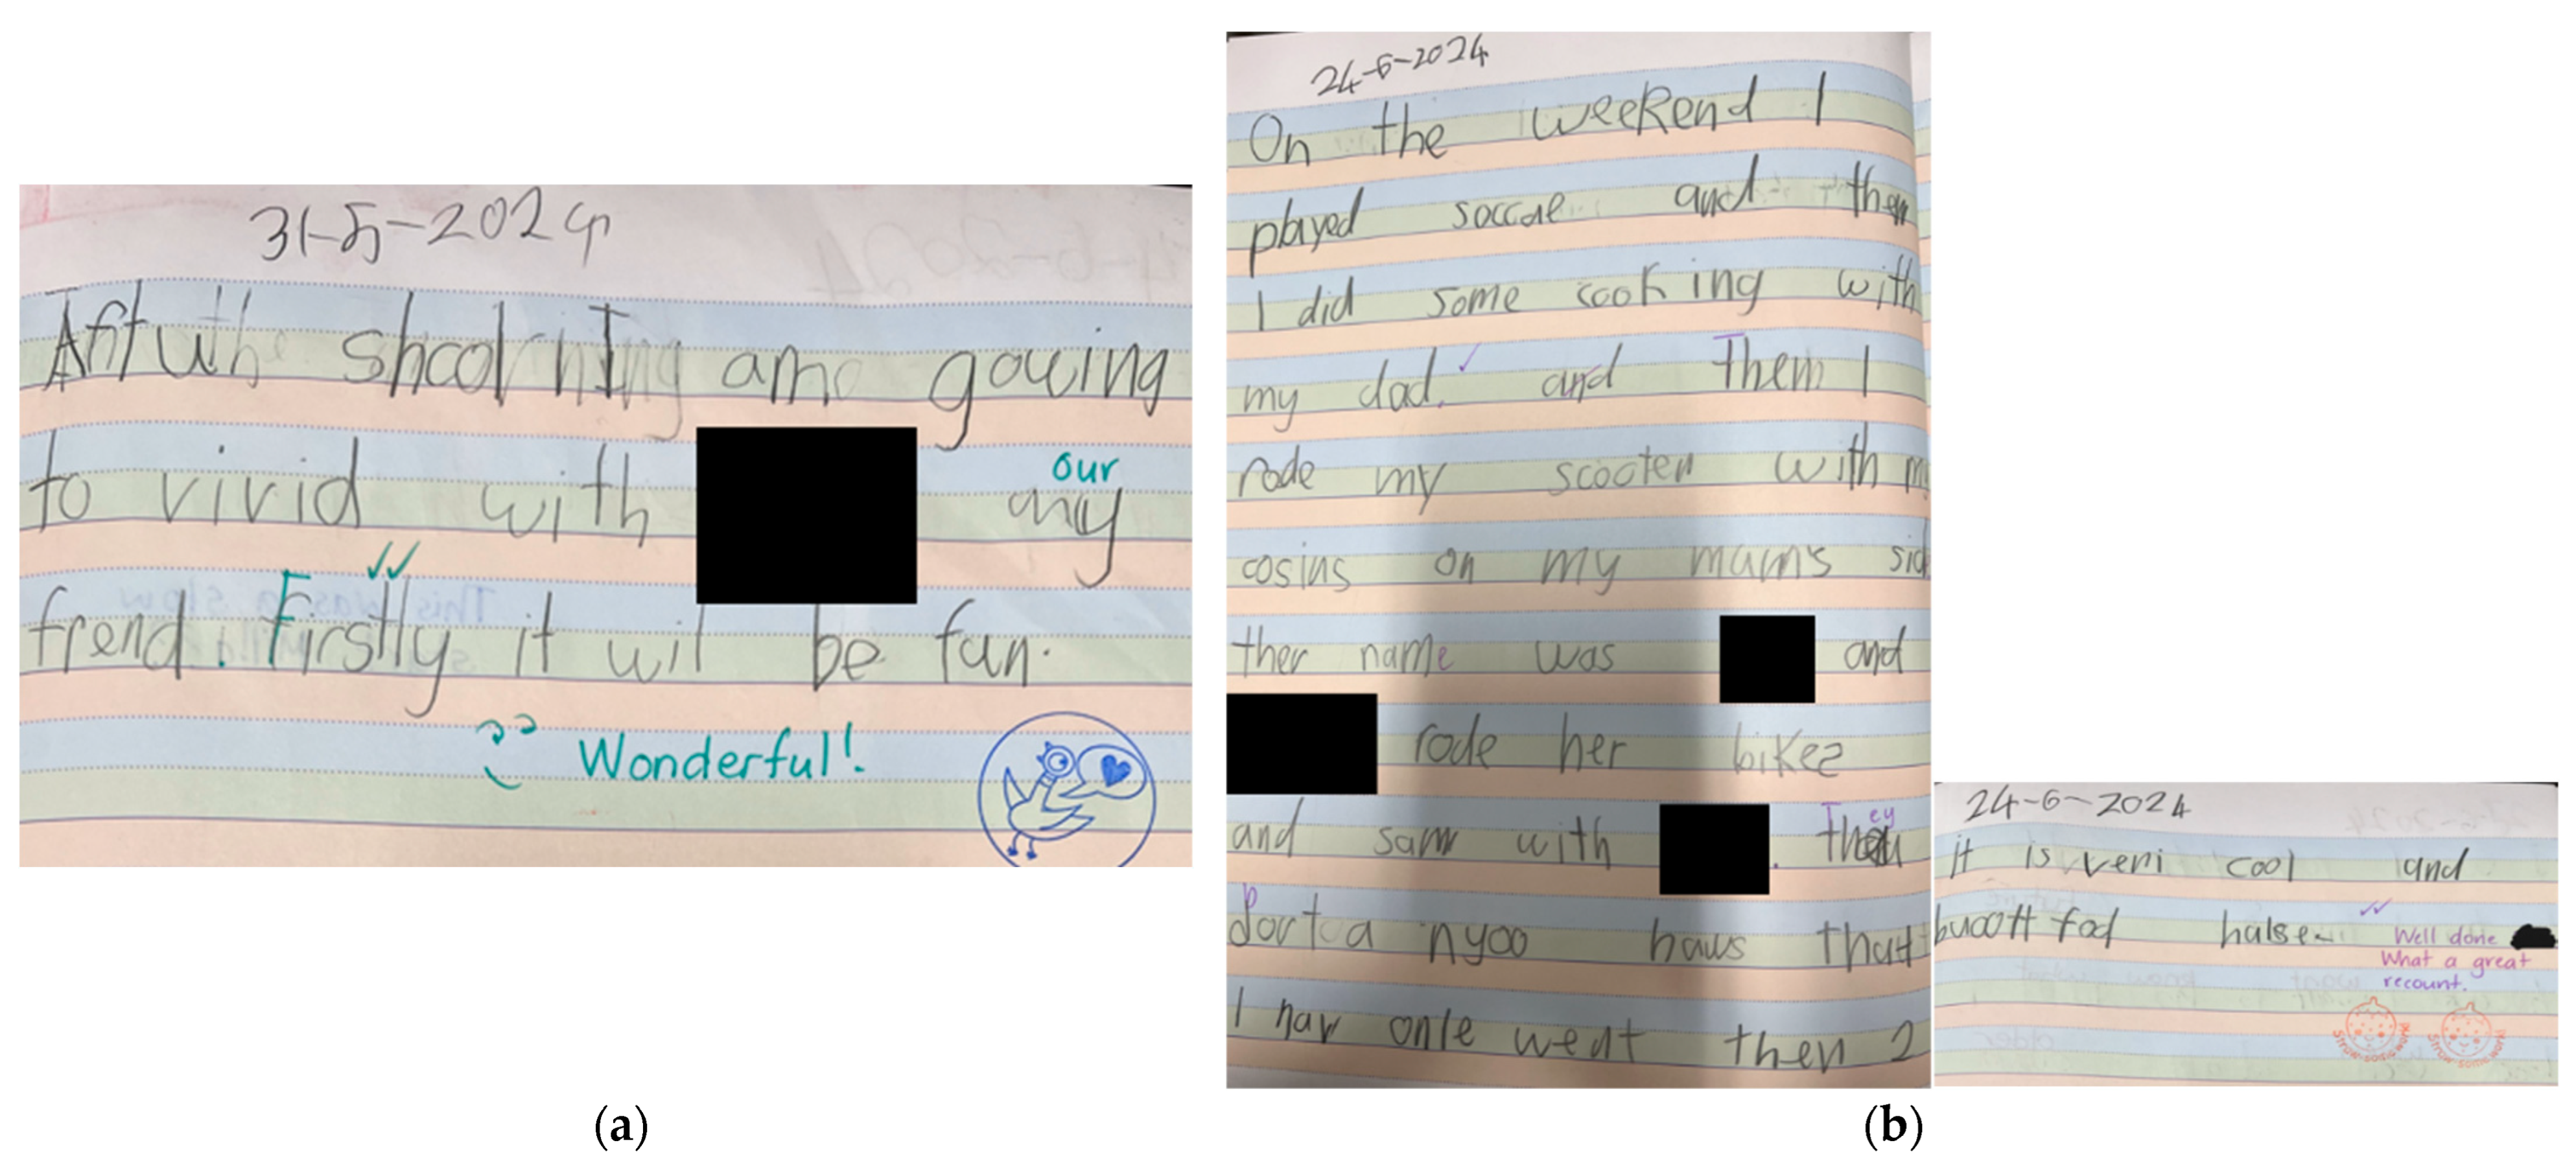 31-5-2024
Aftu shcol I am gowing
to vivid with our my
frend. Firstly it wil be fun.
Wonderful!
(a)
24-6-2024
On the weekend I
played soccae and then
I did some cooking with
my dad. and Then I
rode my scooter with my
cosins on my mum's sid
ther name was and
rode her bikes
and sam with . They
nyoo haws that
I hav onle went then 2
24-6-2024
it is veri cool and
fod halse
Well done
What a great
recount.
(b)